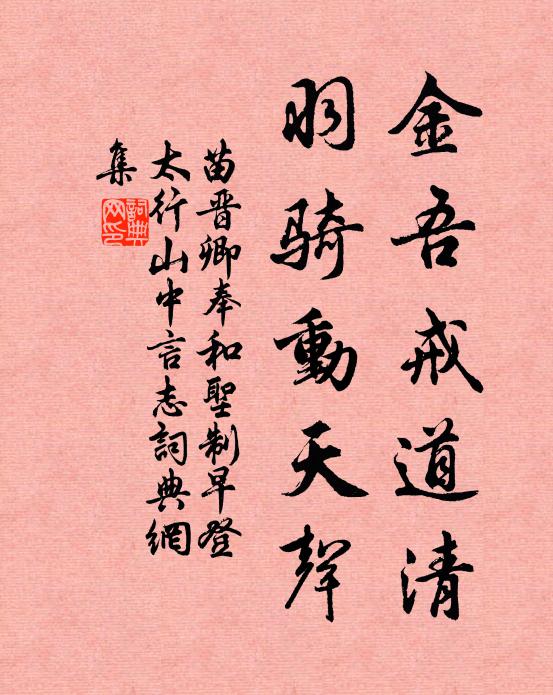 金吾戒道清
羽騎動天聲
苗晋卿奉和聖制早登
太行山中言志詞典網
集
詞典網印